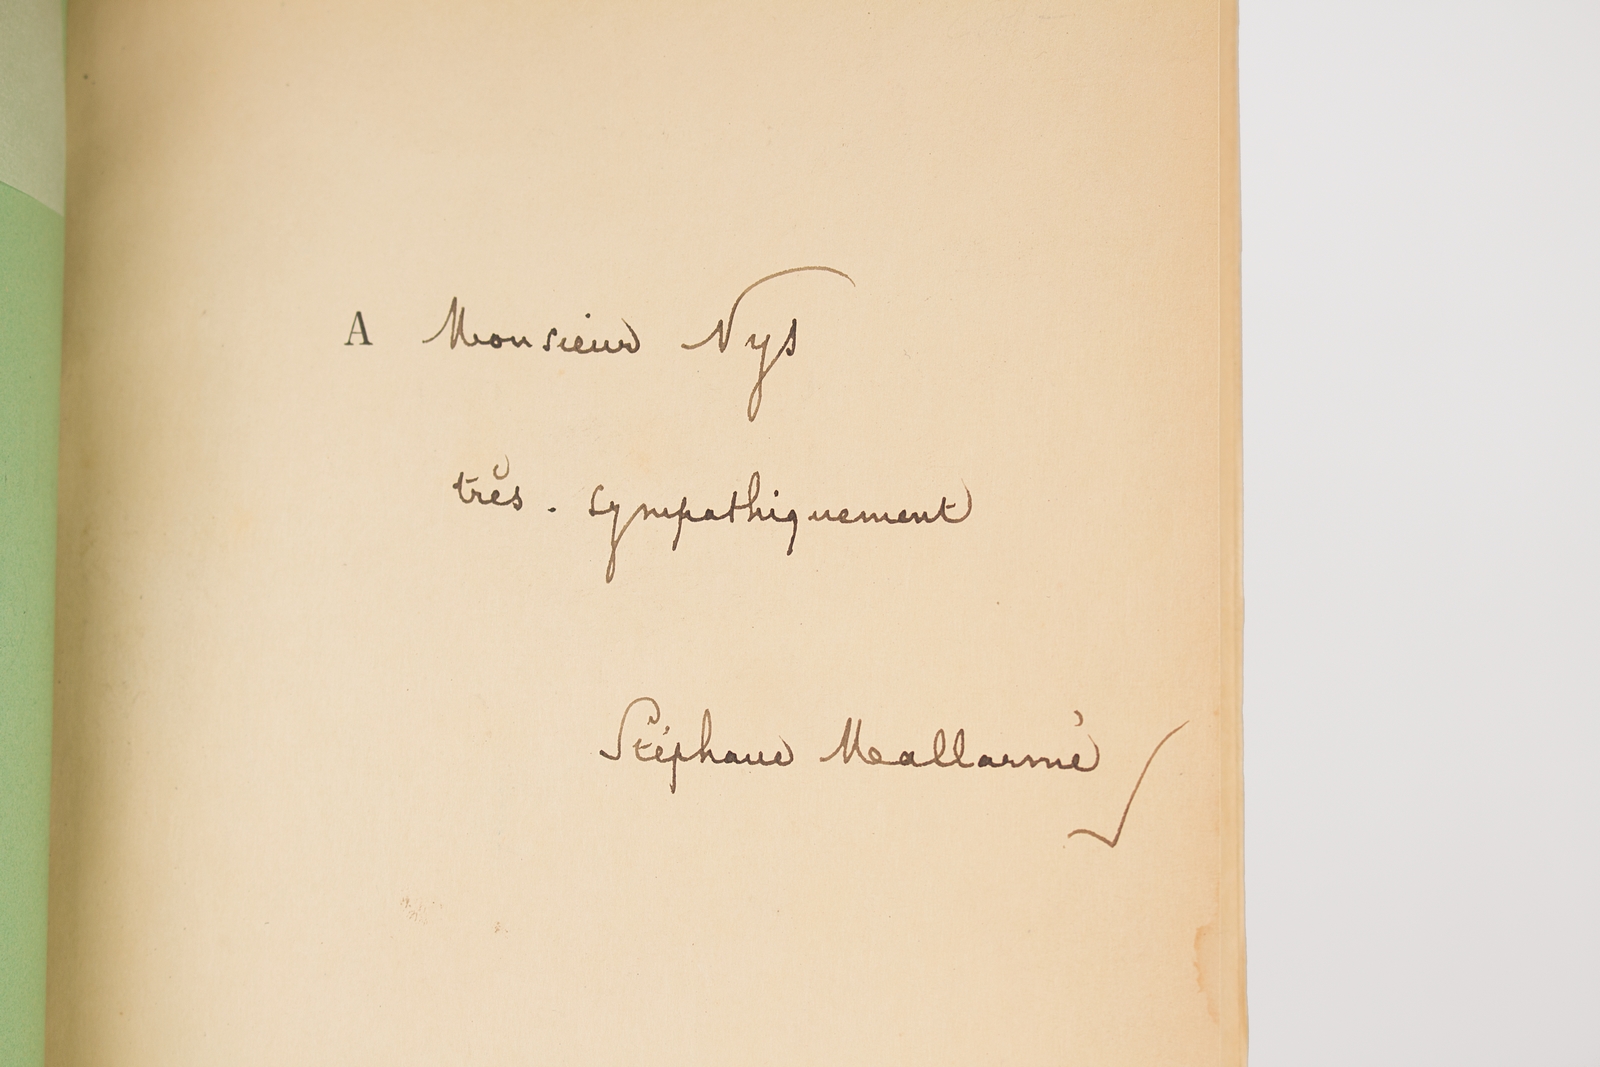 A Monsieur Nys
très. sympathiquement
Stéphane Mallarmé